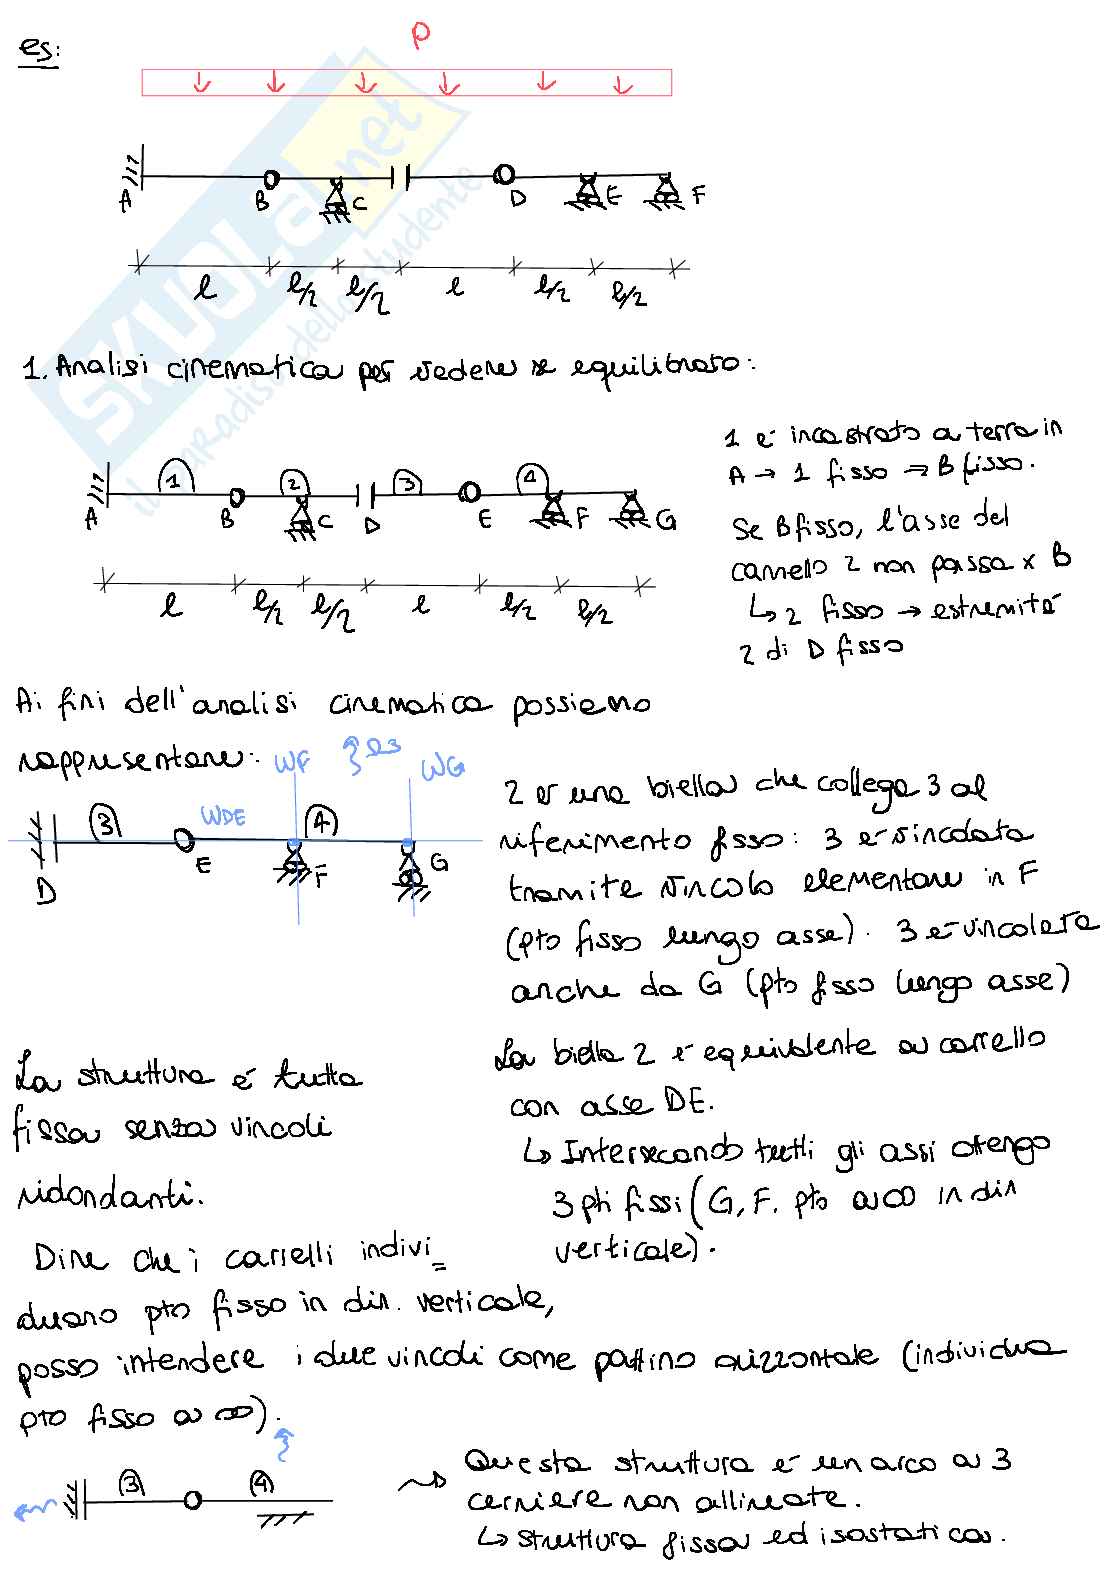 es:
P
A B C D E F
l l/2 l/2 l l/2 l/2
1. Analisi cinematica per vedere se equilibrato:
1 2 3 4
A B C D E F G
l l/2 l/2 l l/2 l/2
1 è incastrato a terra in
A → 1 fisso ⇒ B fisso.
Se B fisso, l'asse del
carrello 2 non passa x B
↳ 2 fisso → estremità
2 di D fisso
Ai fini dell'analisi cinematica possiamo
rappresentare:
WF WG
WDE
3 4
D E F G
2 è una biella che collega 3 al
riferimento fisso: 3 è vincolata
tramite vincolo elementare in F
(pto fisso lungo asse). 3 è vincolata
anche da G (pto fisso lungo asse)
La biella 2 è equivalente a carrello
con asse DE.
↳ Intersecando tutti gli assi ottengo
3 pti fissi (G, F, pto a ∞ in dir
verticale).
La struttura è tutta
fissa senza vincoli
ridondanti.
Dire che i carrelli indivi=
duano pto fisso in dir. verticale,
posso intendere i due vincoli come pattino orizzontale (individua
pto fisso a ∞).
3 4
Questa struttura è un arco a 3
cerniere non allineate.
↳ struttura fissa ed isostatica.
SKUOLA.net
il paradiso dello studente